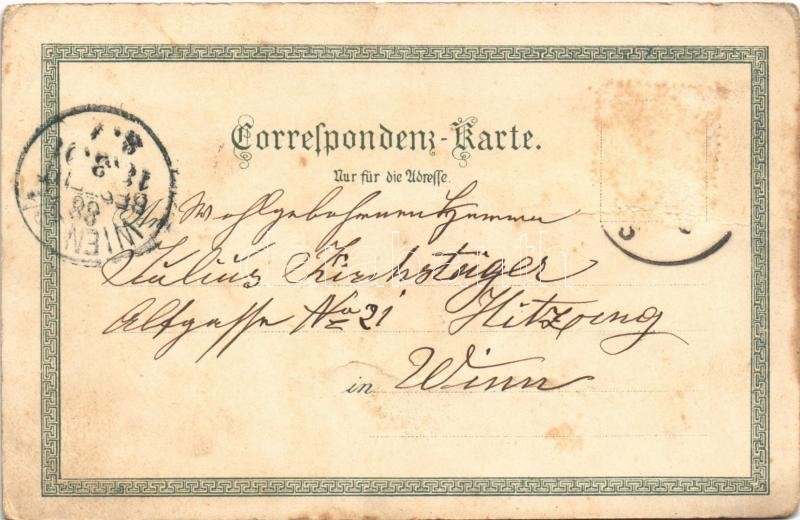 Correspondenz-Karte.
Nur für die Adresse.
An Wohlgebohrenen Herrn
Julius Kirchsteiger
Altgasse No 21 Hitzing
in Wien
WIEN
88